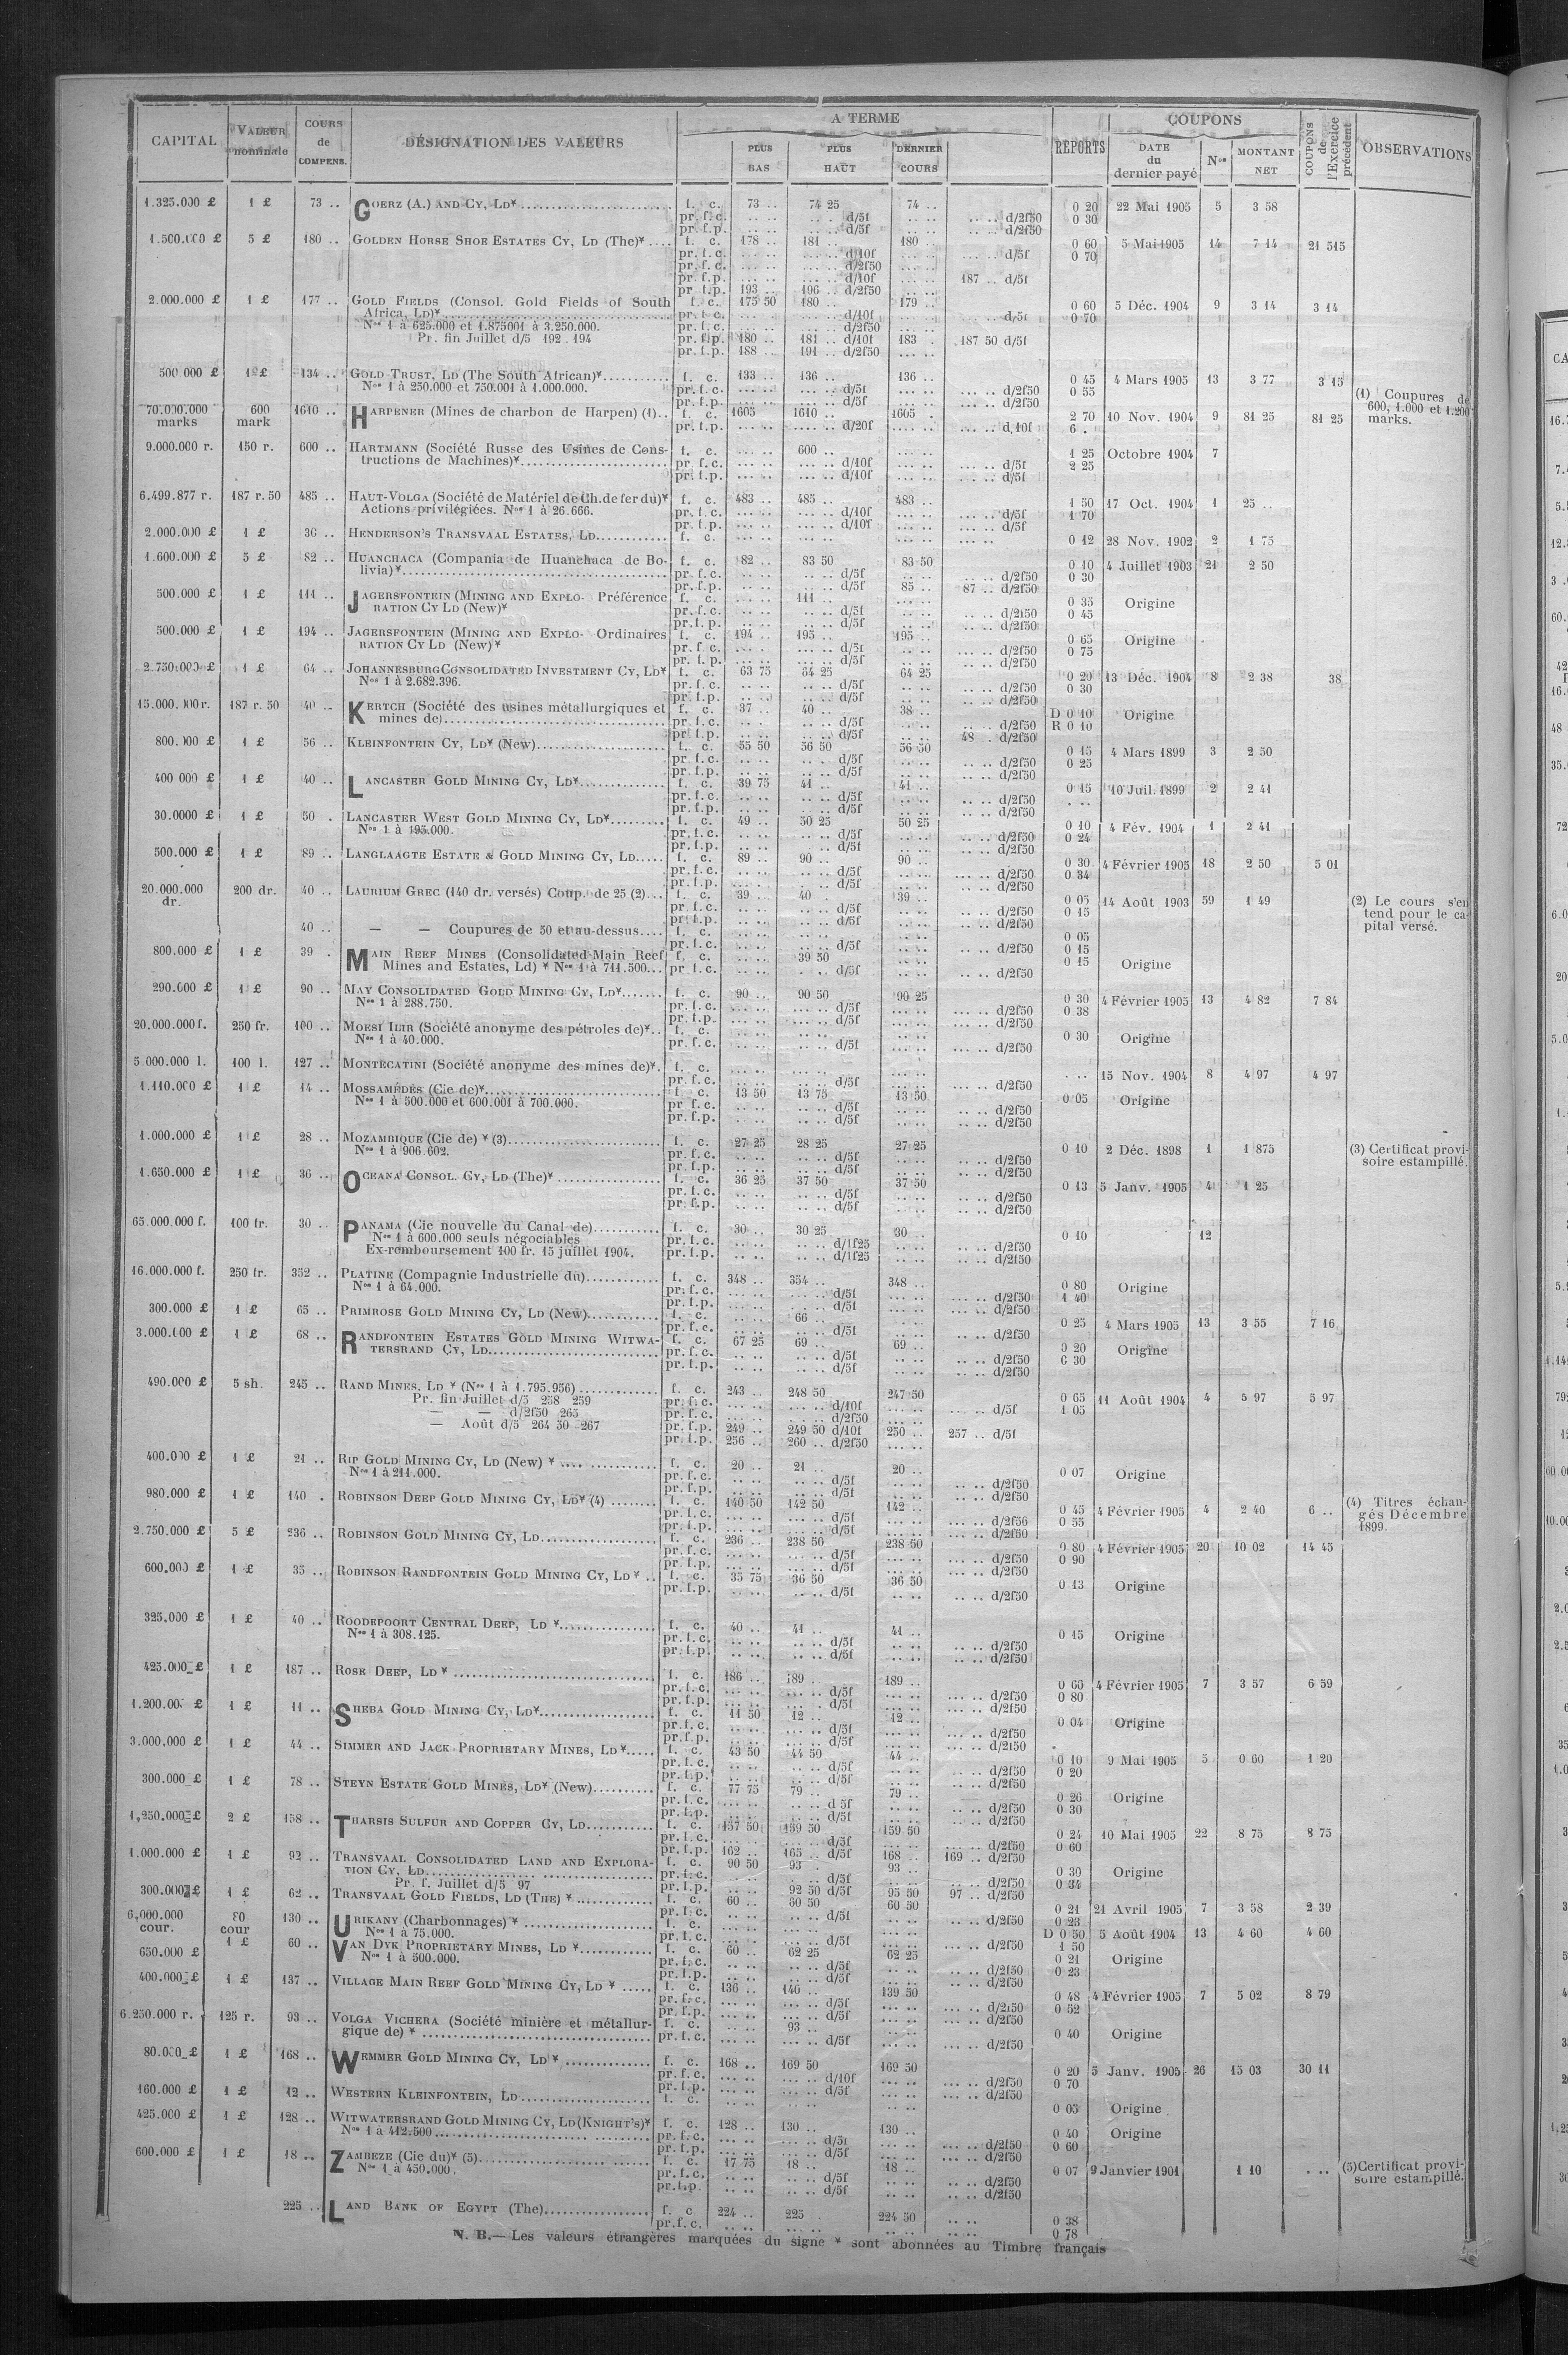 CAPITAL VALEUR nominale COURS de COMPENS. DÉSIGNATION DES VALEURS A TERME PLUS BAS PLUS HAUT DERNIER COURS REPORTS COUPONS DATE du dernier payé Nos MONTANT NET COUPONS de l'Exercice précédent OBSERVATIONS
1.325.000 £ 1 £ 73 .. GOERZ (A.) AND CY, LD* f. c. 73 .. 74 25 74 .. 0 20 22 Mai 1905 5 3 58
pr. f. c. .. .. .. . d/5f .. .. .. .. d/2f50 0 30
pr. f. p. .. .. .. .. d/5f .. .. .. .. d/2f50
1.500.000 £ 5 £ 180 .. GOLDEN HORSE SHOE ESTATES CY, LD (The)* f. c. 178 .. 181 .. 180 .. 0 60 5 Mai 1905 14 7 14 21 515
pr. f. c. ... .. ... .. d/10f ... .. ... .. d/5f 0 70
pr. f. c. ... .. ... .. d/2f50 ... ..
pr. f. p. ... .. ... .. d/10f ... .. 187 .. d/5f
pr f.p. 193 .. 196 .. d/2f50 ... ..
2.000.000 £ 1 £ 177 .. GOLD FIELDS (Consol. Gold Fields of South f. c. 175 50 180 .. 179 .. 0 60 5 Déc. 1904 9 3 14 3 14
Africa, LD)* pr. f. c. ... .. ... .. d/10f ... .. ... .. d/5f 0 70
Nos 1 à 625.000 et 1.875001 à 3.250.000. pr. f. c. ... .. ... .. d/2f50 ... ..
Pr. fin Juillet d/5 192 . 194 pr. f.p. 180 .. 181 .. d/10f 183 . 187 50 d/5f
pr. f.p. 188 .. 191 .. d/2f50 ... ..
500 000 £ 1 £ 134 .. GOLD TRUST, LD (The South African)* f. c. 133 .. 136 .. 136 .. 0 45 4 Mars 1905 13 3 77 3 15
Nos 1 à 250.000 et 750.001 à 1.000.000. pr. f. c. ... .. ... .. d/5f ... .. ... .. d/2f50 0 55
pr. f. p. ... .. ... .. d/5f ... .. ... .. d/2f50
(1) Coupures de
600, 1.000 et 1.200
marks.
70.000.000 marks 600 mark 1610 .. HARPENER (Mines de charbon de Harpen) (1).. f. c. 1605 1610 .. 1605 . 2 70 10 Nov. 1904 9 81 25 81 25
pr. f. p. ... .. .... .. d/20f ... .. ... .. d,10f 6 .
9.000.000 r. 150 r. 600 .. HARTMANN (Société Russe des Usines de Cons- f. c. ... .. 600 .. ... .. 1 25 Octobre 1904 7
tructions de Machines)* pr. f. c. ... .. ... .. d/10f ... .. ... .. d/5f 2 25
pr. f. p. ... .. ... .. d/10f ... .. ... .. d/5f
6.499.877 r. 187 r. 50 485 .. HAUT-VOLGA (Société de Matériel de Ch. de fer du)* f. c. 483 .. 485 .. 483 .. 1 50 17 Oct. 1904 1 25 ..
Actions privilégiées. Nos 1 à 26.666. pr. f. c. ... .. ... .. d/10f ... .. ... .. d/5f 1 70
pr. f. p. ... .. ... .. d/10f ... .. ... .. d/5f
2.000.000 £ 1 £ 30 .. HENDERSON'S TRANSVAAL ESTATES, LD f. c. ... .. ... .. ... .. ... .. 0 12 28 Nov. 1902 2 1 75
1.600.000 £ 5 £ 82 .. HUANCHACA (Compania de Huanchaca de Bo- f. c. 82 .. 83 50 83 50 0 10 4 Juillet 1903 21 2 50
livia)* pr. f. c. .. .. .. .. d/5f .. .. .. .. d/2f50 0 30
pr. f. p. .. .. .. .. d/5f 85 .. 87 .. d/2f50
500.000 £ 1 £ 111 .. JAGERSFONTEIN (MINING AND EXPLO- Préférence f. c. ... .. 111 .. ... .. 0 35 Origine
RATION CY LD (New)* pr. f. c. .. .. .. .. d/5f .. .. .. .. d/2f50 0 45
pr. f. p. .. .. .. .. d/5f .. .. .. .. d/2f50
500.000 £ 1 £ 194 .. JAGERSFONTEIN (MINING AND EXPLO- Ordinaires f. c. 194 .. 195 .. 195 .. 0 65 Origine
RATION CY LD (New)* pr. f. c. ... . ... .. d/5f ... .. ... .. d/2f50 0 75
pr. f. p. ... .. ... .. d/5f .. .. .. .. d/2f50
2.750.000 £ 1 £ 64 .. JOHANNESBURG CONSOLIDATED INVESTMENT CY, LD* f. c. 63 75 64 25 64 25 0 20 13 Déc. 1904 8 2 38 38
Nos 1 à 2.682.396. pr. f. c. .. .. .. .. d/5f .. .. .. .. d/2f50 0 30
pr. f. p. .. .. .. .. d/5f .. .. .. .. d/2f50
15.000.000 r. 187 r. 50 40 .. KERTCH (Société des usines métallurgiques et f. c. 37 .. 40 .. 38 .. D 0 10 Origine
mines de) pr. f. c. .. . .. .. d/5f .. .. .. .. d/2f50 R 0 10
pr f. p. .. .. .. .. d/5f .. .. 48 . d/2f50
800.000 £ 1 £ 56 .. KLEINFONTEIN CY, LD* (New) f. c. 55 50 56 50 56 50 0 15 4 Mars 1899 3 2 50
pr f. c. .. .. .. .. d/5f .. .. .. .. d/2f50 0 25
pr. f. p. .. .. .. .. d/5f .. .. .. .. d/2f50
400 000 £ 1 £ 40 .. LANCASTER GOLD MINING CY, LD* f. c. 39 75 41 .. 41 .. 0 15 10 Juil. 1899 2 2 41
pr. f. c. .. .. .. .. d/5f .. .. .. .. d/2f50 . ..
pr. f. p. .. .. .. .. d/5f .. .. .. .. d/2f50
30.0000 £ 1 £ 50 . LANCASTER WEST GOLD MINING CY, LD* f. c. 49 .. 50 25 50 25 0 10 4 Fév. 1904 1 2 41
Nos 1 à 195.000. pr. f. c. .. .. .. .. d/5f .. .. .. .. d/2f50 0 24
pr. f. p. .. .. .. .. d/5f .. .. .. .. d/2f50
500.000 £ 1 £ 89 .. LANGLAAGTE ESTATE & GOLD MINING CY, LD f. c. 89 .. 90 .. 90 .. 0 30 4 Février 1905 18 2 50 5 01
pr. f. c. ... .. .. .. d/5f ... .. ... .. d/2f50 0 34
pr. f. p. ... . . .. d/5f .. .. .. .. d/2f50
20.000.000 dr. 200 dr. 40 .. LAURIUM GREC (140 dr. versés) Coup. de 25 (2) f. c. 39 .. 40 . 39 .. 0 05 14 Août 1903 59 1 49
pr. f. c. .. .. .. .. d/5f .. .. .. .. d/2f50 0 15
pr. f. p. .. .. .. .. d/5f .. .. .. .. d/2f50
(2) Le cours s'en
tend pour le ca-
pital versé.
40 .. — — Coupures de 50 et au-dessus f. c. .. .. .. .. .. .. 0 05
pr. f. c. .. .. .. .. d/5f .. .. .. .. d/2f50 0 15
800.000 £ 1 £ 39 . MAIN REEF MINES (Consolidated Main Reef f. c. .. .. 39 50 .. .. 0 15 Origine
Mines and Estates, Ld) * Nos 1 à 711.500 pr f. c. .. .. . .. d/5f .. .. .. .. d/2f50
290.000 £ 1 £ 90 .. MAY CONSOLIDATED GOLD MINING CY, LD* f. c. 90 .. 90 50 90 25 0 30 4 Février 1905 13 4 82 7 84
Nos 1 à 288.750. pr. f. c. ... .. ... .. d/5f ... .. ... .. d/2f50 0 38
pr. f. p. ... .. ... .. d/5f ... .. ... .. d/2f50
20.000.000 f. 250 fr. 100 .. MOESI ILIR (Société anonyme des pétroles de)* f. c. ... .. ... .. ... .. 0 30 Origine
Nos 1 à 40.000. pr. f. c. .. .. .. .. d/5f ... .. ... .. d/2f50
5.000.000 l. 100 l. 127 .. MONTECATINI (Société anonyme des mines de)* f. c. ... .. ... .. ... .. . .. 15 Nov. 1904 8 4 97 4 97
pr. f. c. ... .. ... .. d/5f ... .. ... .. d/2f50
1.110.000 £ 1 £ 14 .. MOSSAMÉDÈS (Cie de)* f. c. 13 50 13 75 13 50 0 05 Origine
Nos 1 à 500.000 et 600.001 à 700.000. pr f. c. .. .. .. .. d/5f .. .. .. .. d/2f50
pr. f. p. .. .. .. .. d/5f .. .. .. .. d/2f50
1.000.000 £ 1 £ 28 .. MOZAMBIQUE (Cie de) * (3) f. c. 27 25 28 25 27 25 0 10 2 Déc. 1898 1 1 875 (3) Certificat provi-
Nos 1 à 906.602. pr. f. c. .. .. .. .. d/5f .. .. .. .. d/2f50 soire estampillé.
pr. f. p. .. .. .. .. d/5f .. .. .. .. d/2f50
1.650.000 £ 1 £ 36 .. OCEANA CONSOL. CY, LD (The)* f. c. 36 25 37 50 37 50 0 13 5 Janv. 1905 4 1 25
pr. f. c. .. .. .. .. d/5f .. .. .. .. d/2f50
pr. f. p. .. .. .. .. d/5f .. .. .. .. d/2f50
65.000.000 f. 100 fr. 30 .. PANAMA (Cie nouvelle du Canal de) f. c. 30 .. 30 25 30 .. 0 10 12
Nos 1 à 600.000 seuls négociables pr. f. c. .. .. .. .. d/1f25 .. .. .. .. d/2f50
Ex-remboursement 100 fr. 15 juillet 1904. pr. f. p. .. .. .. .. d/1f25 .. .. .. .. d/2f50
16.000.000 f. 250 fr. 352 .. PLATINE (Compagnie Industrielle du) f. c. 348 .. 354 .. 348 .. 0 80 Origine
Nos 1 à 64.000. pr. f. c. ... .. ... .. d/5f ... .. ... .. d/2f50 1 40
pr. f. p. ... .. . .. d/5f ... .. ... .. d/2f50
300.000 £ 1 £ 65 .. PRIMROSE GOLD MINING CY, LD (New) f. c. 66 .. 0 25 4 Mars 1905 13 3 55 7 16
pr. f. c. .. .. .. .. d/5f .. .. .. .. d/2f50
3.000.000 £ 1 £ 68 .. RANDFONTEIN ESTATES GOLD MINING WITWA- f. c. 67 25 69 .. 69 .. 0 20 Origine
TERSRAND CY, LD pr. f. c. .. .. .. .. d/5f .. .. .. .. d/2f50 0 30
pr. f. p. .. .. .. .. d/5f .. .. .. .. d/2f50
490.000 £ 5 sh. 245 .. RAND MINES. LD * (Nos 1 à 1.795.956) f. c. 243 .. 248 50 247 50 0 65 11 Août 1904 4 5 97 5 97
Pr. fin Juillet d/5 258 259 pr. f. c. ... .. ... .. d/10f ... .. ... .. d/5f 1 05
— — d/2f50 265 pr. f. c. ... .. ... .. d/2f50 ... ..
— Août d/5 264 50 267 pr. f. p. 249 .. 249 50 d/10f 250 .. 257 .. d/5f
pr. f. p. 256 .. 260 .. d/2f50 ... ..
400.000 £ 1 £ 21 .. RIP GOLD MINING CY, LD (New) * f. c. 20 .. 21 .. 20 .. 0 07 Origine
Nos 1 à 211.000. pr. f. c. .. .. .. .. d/5f .. .. .. .. d/2f50
pr. f. p. .. .. .. .. d/5f .. .. .. .. d/2f50
980.000 £ 1 £ 140 . ROBINSON DEEP GOLD MINING CY, LD* (4) f. c. 140 50 142 50 142 .. 0 45 4 Février 1905 4 2 40 6 .. (4) Titres échan-
pr. f. c. ... .. ... .. d/5f ... .. ... .. d/2f50 0 55 gés Décembre
pr. f. p. ... .. ... .. d/5f ... .. ... .. d/2f50 1899.
2.750.000 £ 5 £ 236 .. ROBINSON GOLD MINING CY, LD f. c. 236 .. 238 50 238 50 0 80 4 Février 1905 20 10 02 14 45
pr. f. c. ... .. ... .. d/5f ... .. ... .. d/2f50 0 90
pr. f. p. ... .. ... .. d/5f ... .. ... .. d/2f50
600.000 £ 1 £ 35 .. ROBINSON RANDFONTEIN GOLD MINING CY, LD * f. c. 35 75 36 50 36 50 0 13 Origine
pr. f. p. .. .. .. .. d/5f .. .. .. .. d/2f50
325.000 £ 1 £ 40 .. ROODEPOORT CENTRAL DEEP, LD * f. c. 40 .. 41 .. 41 .. 0 15 Origine
Nos 1 à 308.125. pr. f. c. .. .. .. .. d/5f .. .. .. .. d/2f50
pr. f. p. .. .. .. .. d/5f .. .. .. .. d/2f50
425.000 £ 1 £ 187 .. ROSE DEEP, LD * f. c. 186 .. 189 . 189 .. 0 60 4 Février 1905 7 3 57 6 59
pr. f. c. ... .. ... .. d/5f ... .. ... .. d/2f50 0 80
pr. f. p. ... .. ... .. d/5f ... .. ... .. d/2f50
1.200.000 £ 1 £ 11 .. SHEBA GOLD MINING CY, LD* f. c. 11 50 12 .. 12 .. 0 04 Origine
pr. f. c. .. .. .. .. d/5f ... .. ... .. d/2f50
pr. f. p. .. .. .. .. d/5f ... .. ... .. d/2f50
3.000.000 £ 1 £ 44 .. SIMMER AND JACK PROPRIETARY MINES, LD* f. c. 43 50 44 50 44 .. 0 10 9 Mai 1905 5 0 60 1 20
pr. f. c. .. .. .. .. d/5f .. .. .. .. d/2f50 0 20
pr. f. p. .. .. .. .. d/5f .. .. .. .. d/2f50
300.000 £ 1 £ 78 .. STEYN ESTATE GOLD MINES, LD* (New) f. c. 77 75 79 .. 79 .. 0 26 Origine
pr. f. c. ... .. .. .. d 5f .. .. .. .. d/2f50 0 30
pr. f. p. .. .. .. .. d/5f .. .. .. .. d/2f50
1,250.000 £ 2 £ 158 .. THARSIS SULFUR AND COPPER CY, LD f. c. 157 50 159 50 159 50 0 24 10 Mai 1905 22 8 75 8 75
pr. f. c. ... .. ... .. d/5f ... .. ... .. d/2f50 0 60
pr. f. p. 162 .. 165 .. d/5f 168 .. 169 .. d/2f50
1.000.000 £ 1 £ 92 .. TRANSVAAL CONSOLIDATED LAND AND EXPLORA- f. c. 90 50 93 . 93 .. 0 30 Origine
TION CY, LD pr. f. c. .. .. .. .. d/5f .. .. .. .. d/2f50 0 34
Pr. f. Juillet d/5 97 pr. f. p. .. .. 92 50 d/5f 95 50 97 .. d/2f50
300.000 £ 1 £ 62 .. TRANSVAAL GOLD FIELDS, LD (THE) * f. c. 60 .. 60 50 60 50 0 21 21 Avril 1905 7 3 58 2 39
pr. f. c. .. .. .. .. d/5f .. .. .. .. d/2f50 0 23
6,000.000 cour. 80 cour 130 .. URIKANY (Charbonnages) * f. c. ... .. ... .. ... .. D 0 50 5 Août 1904 13 4 60 4 60
Nos 1 à 75.000. pr. f. c. ... .. ... .. d/5f ... .. ... .. d/2f50 1 50
650.000 £ 1 £ 60 .. VAN DYK PROPRIETARY MINES, LD * f. c. 60 .. 62 25 62 25 0 21 Origine
Nos 1 à 500.000. pr. f. c. .. .. .. .. d/5f .. .. .. .. d/2f50 0 23
pr. f. p. .. .. .. .. d/5f .. .. .. .. d/2f50
400.000 £ 1 £ 137 .. VILLAGE MAIN REEF GOLD MINING CY, LD * f. c. 136 .. 140 .. 139 50 0 48 4 Février 1905 7 5 02 8 79
pr. f. c. ... .. ... .. d/5f ... .. ... .. d/2f50 0 52
pr. f. p. ... .. ... .. d/5f ... .. ... .. d/2f50
6.250.000 r. 125 r. 93 .. VOLGA VICHERA (Société minière et métallur- f. c. .. .. 93 .. .. .. 0 40 Origine
gique de) * pr. f. c. ... .. ... .. d/5f ... .. ... .. d/2f50
80.000 £ 1 £ 168 .. WEMMER GOLD MINING CY, LD * f. c. 168 .. 169 50 169 50 0 20 5 Janv. 1905 26 15 03 30 11
pr. f. c. ... .. ... .. d/10f ... .. ... .. d/2f50 0 70
pr. f. p. ... .. ... .. d/5f ... .. ... .. d/2f50
160.000 £ 1 £ 12 .. WESTERN KLEINFONTEIN, LD f. c. .. .. .. .. .. .. 0 05 Origine
425.000 £ 1 £ 128 .. WITWATERSRAND GOLD MINING CY, LD (KNIGHT'S)* f. c. 128 .. 130 .. 130 .. 0 40 Origine
Nos 1 à 412.500 pr. f. c. ... .. ... .. d/5f ... .. ... .. d/2f50 0 60
pr. f. p. ... .. ... .. d/5f ... .. ... .. d/2f50
600.000 £ 1 £ 18 .. ZAMBEZE (Cie du)* (5) f. c. 17 75 18 .. 18 .. 0 07 9 Janvier 1901 1 10 . .. (5) Certificat provi-
Nos 1 à 450.000. pr. f. c. .. .. .. .. d/5f .. .. .. .. d/2f50 soire estampillé.
pr. f. p. .. .. .. .. d/5f .. .. .. .. d/2f50
225 .. LAND BANK OF EGYPT (The) f. c 224 .. 225 . 224 50 .. .. 0 38
pr. f. c. .. .. .. .. .. .. .. .. 0 78
N. B.— Les valeurs étrangères marquées du signe * sont abonnées au Timbre français